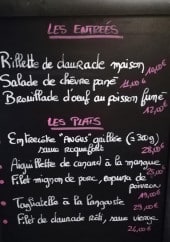 LES ENTRÉES
Rillette de daurade maison 10,00€
Salade de chèvre pané 11,00€
Brouillade d'oeuf au poisson fumé 12,00€
LES PLATS
Entrecôte "ANGUS" grillée (≥300g)
sauce roquefort 28,00€
Aiguillette de canard à la mangue
Filet mignon de porc, espuma de 25,00€
poivron 19,00€
Tagliatelle à la langouste 25,00€
Filet de daurade rôti, sauce vierge
26,00€